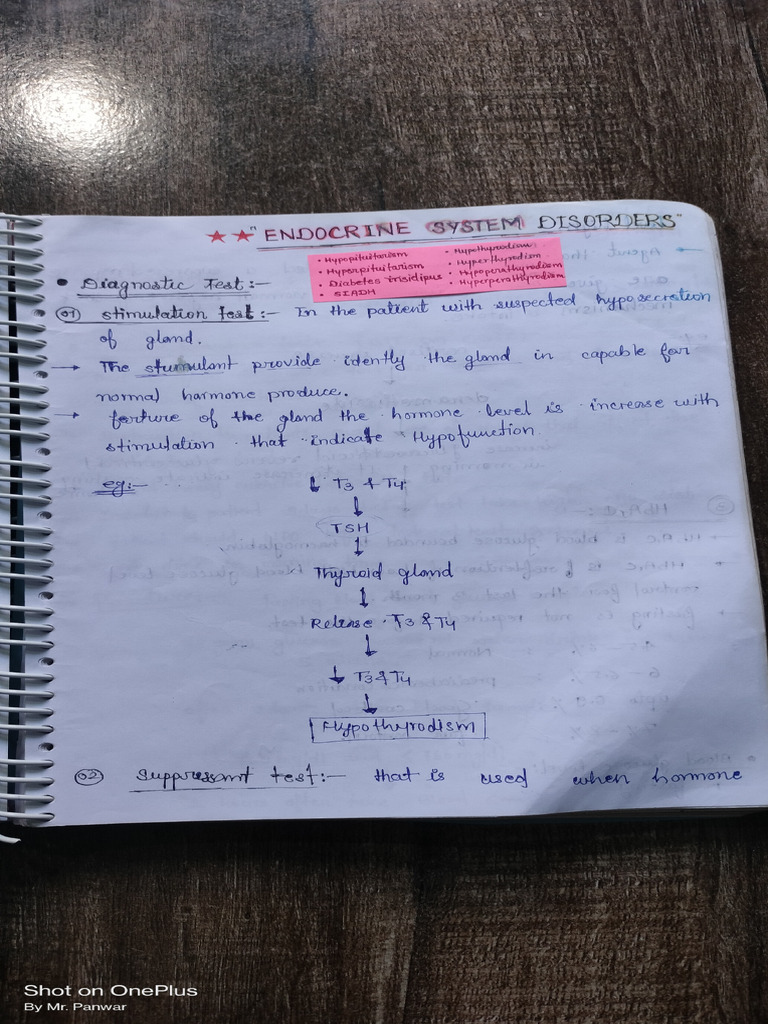 ★★ "ENDOCRINE SYSTEM DISORDERS"
• Hypopituitarism
• Hyperpituitarism
• Diabetes insidipus
• SIADH
• Hypothyrodism
• Hyperthyrodism
• Hypoperathyrodism
• Hyperperathyrodism
• Diagnostic Test:-
01 Stimulation Test:- In the patient with suspected hyposecretion
of gland.
→ The stumulant provide idently the gland in capable for
normal harmone produce.
→ ferture of the gland the hormone level is increase with
stimulation that indicate Hypofunction.
eg:- ↓ T3 & T4
↓
TSH
↓
Thyroid gland
↓
Release T3 & T4
↓
↓ T3 & T4
↓
Hypothyrodism
02 Suppressant test:- that is used when hormone
Shot on OnePlus
By Mr. Panwar